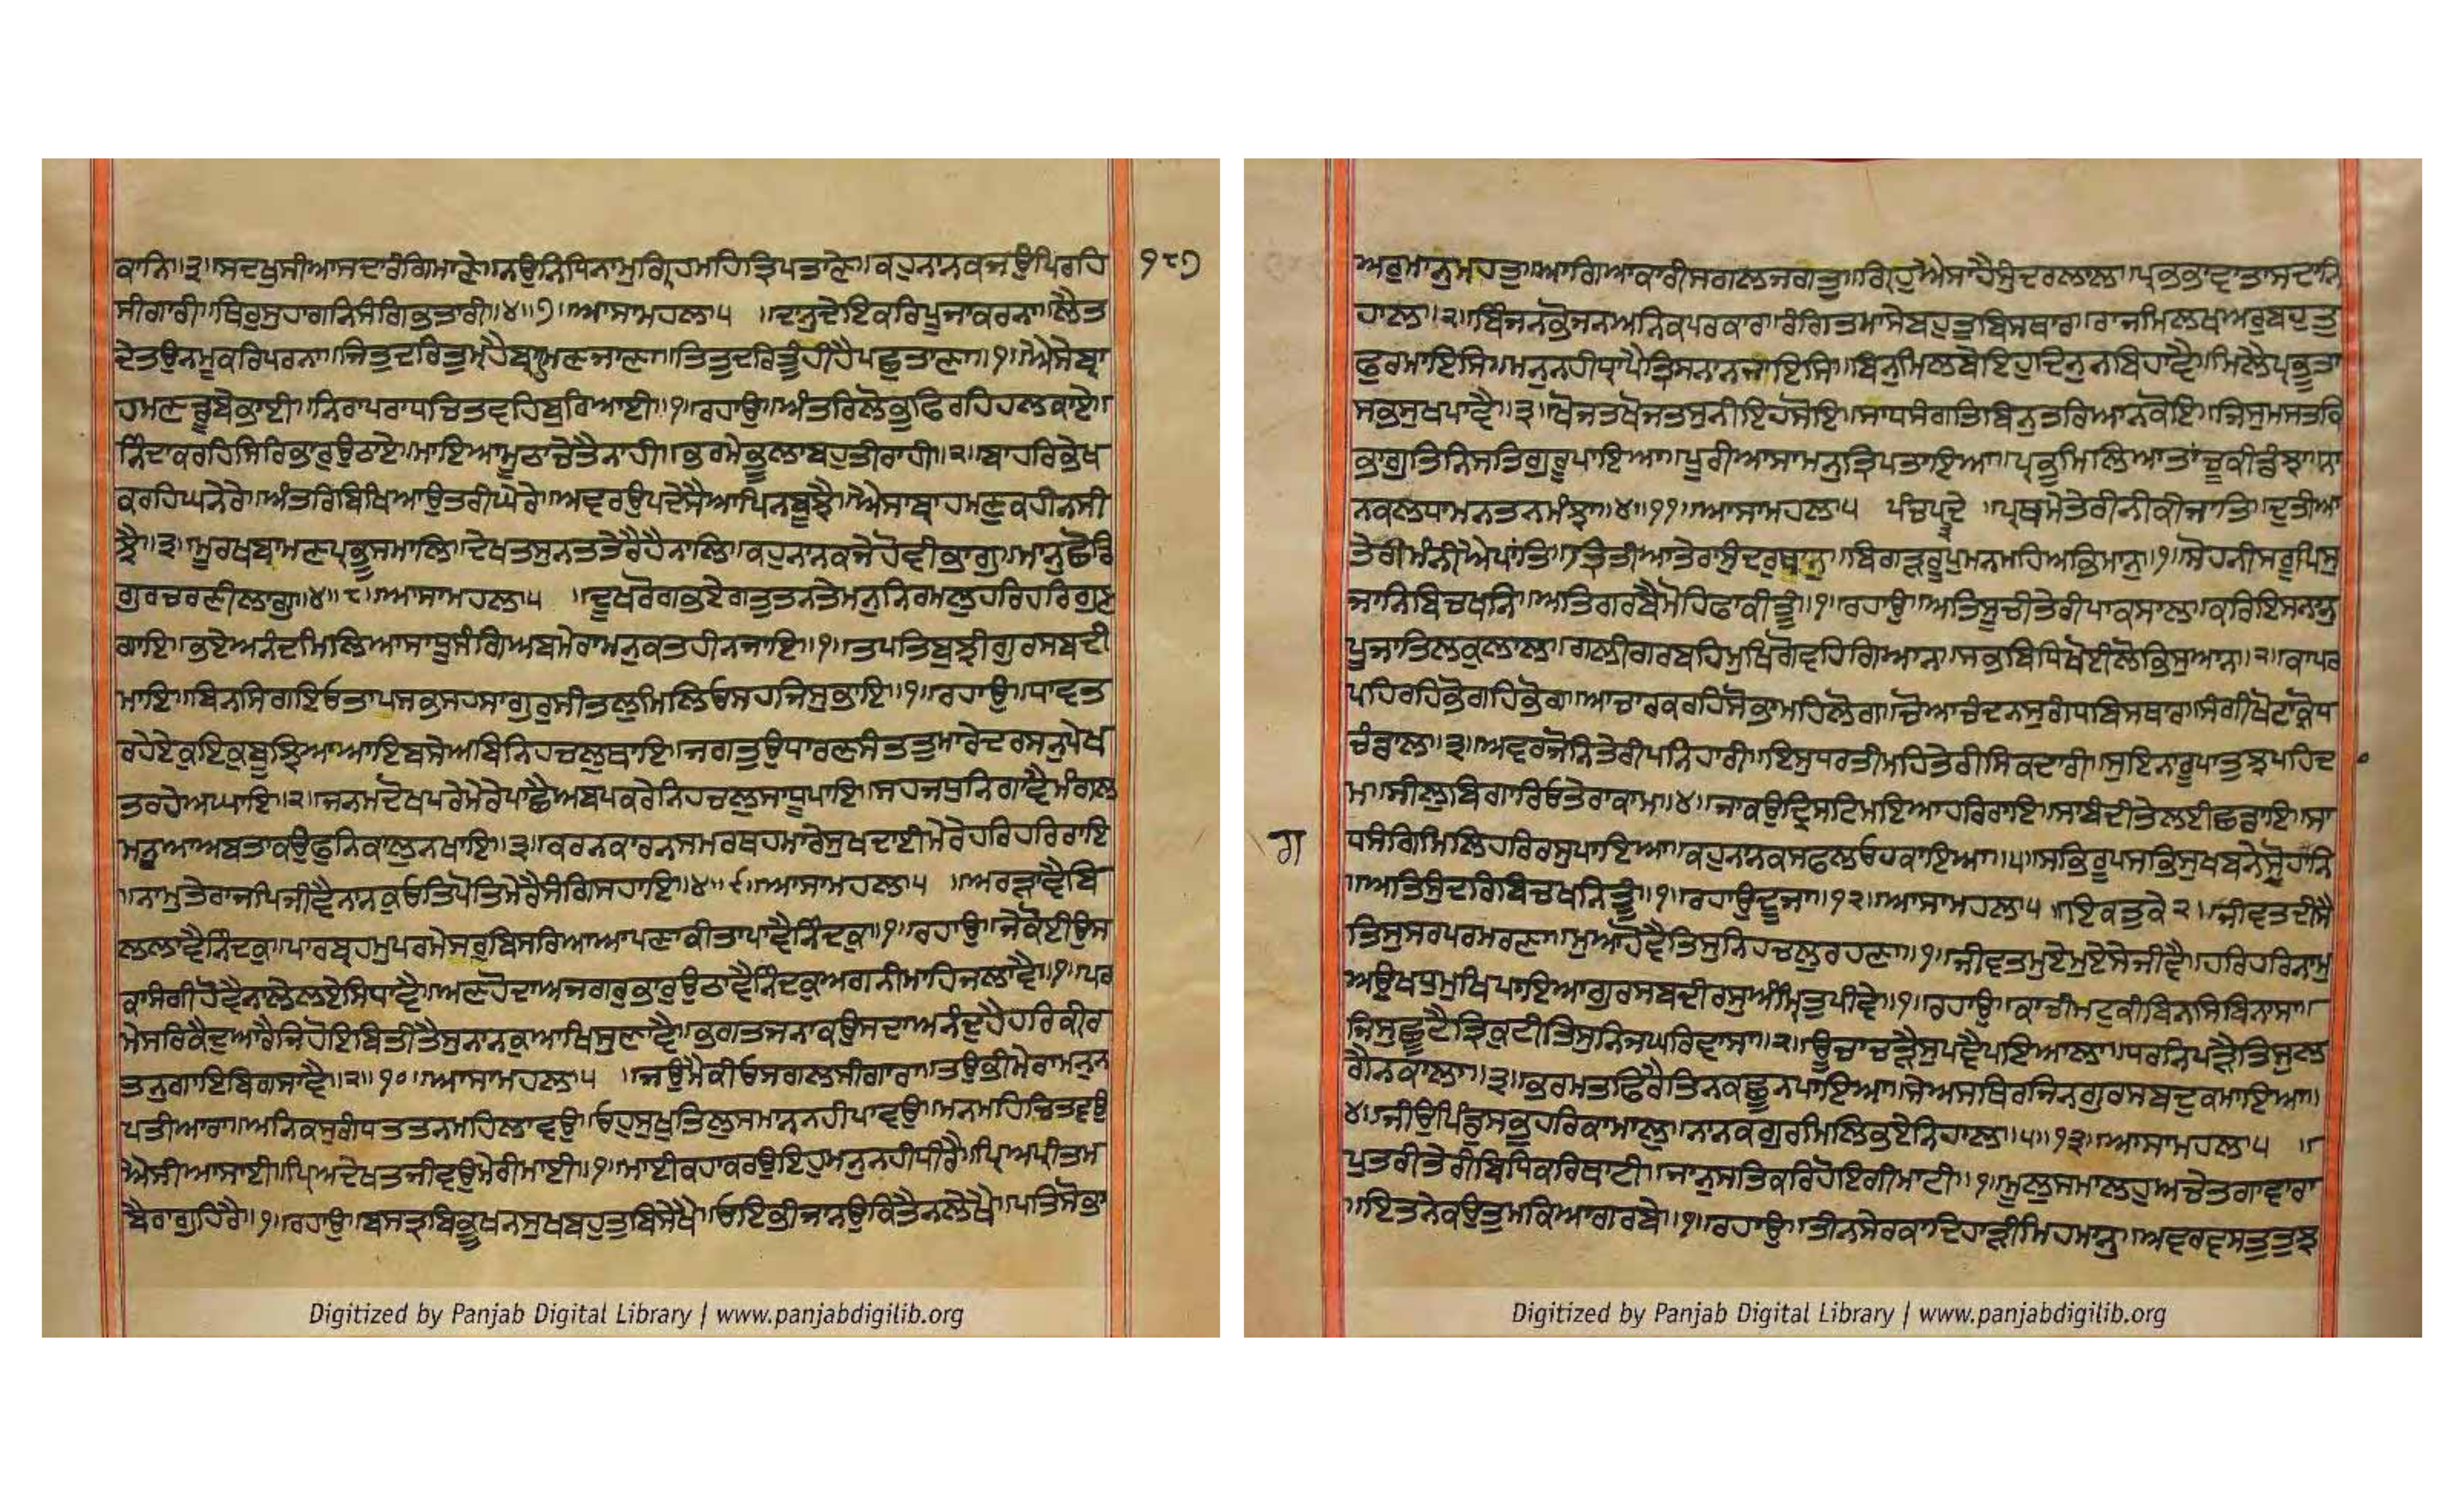 ਕਾਨਿ॥੩॥ਸਦਖੁਸੀਆਸਦਾਰੰਗਿਮਾਣੇ॥ਨਉਨਿਧਿਨਾਮੁਗ੍ਰਿਹਮਹਿਤ੍ਰਿਪਤਾਣੇ॥ਕਹੁਨਾਨਕਜਉਪਿਰਹਿ
੧੮੭
ਸੀਗਾਰੀ॥ਥਿਰੁਸੁਹਾਗਨਿਸੰਗਿਭਤਾਰੀ॥੪॥੭॥ਆਸਾਮਹਲਾ੫ ॥ਦਾਨੁਦੇਇਕਰਿਪੂਜਾਕਰਨਾ॥ਲੈਤ
ਦੇਤਉਨਮੂਕਰਿਪਰਨਾ॥ਜਿਤੁਦਰਿਤੁਮ੍ਹੈਬ੍ਰਾਹਮਣਜਾਣਾ॥ਤਿਤੁਦਰਿਤੂੰਹੀਹੈਪਛੁਤਾਣਾ॥੧॥ਐਸੇਬ੍ਰਾ
ਹਮਣਡੂਬੇਭਾਈ॥ਨਿਰਾਪਰਾਧਚਿਤਵਹਿਬੁਰਿਆਈ॥੧॥ਰਹਾਉ॥ਅੰਤਰਿਲੋਭੁਫਿਰਹਿਹਲਕਾਏ॥
ਨਿੰਦਾਕਰਹਿਸਿਰਿਭਾਰੁਉਠਾਏ॥ਮਾਇਆਮੂਠਾਚੇਤੈਨਾਹੀ॥ਭਰਮੇਭੂਲਾਬਹੁਤੀਰਾਹੀ॥੨॥ਬਾਹਰਿਭੇਖ
ਕਰਹਿਘਨੇਰੇ॥ਅੰਤਰਿਬਿਖਿਆਉਤਰੀਘੇਰੇ॥ਅਵਰਉਪਦੇਸੈਆਪਿਨਬੂਝੈ॥ਐਸਾਬ੍ਰਾਹਮਣੁਕਹੀਨਸੀ
ਝੈ॥੩॥ਮੂਰਖਬਾਮਣਪ੍ਰਭੂਸਮਾਲਿ॥ਦੇਖਤਸੁਨਤਤੇਰੈਹੈਨਾਲਿ॥ਕਹੁਨਾਨਕਜੇਹੋਵੀਭਾਗੁ॥ਮਾਨੁਛੋਡਿ
ਗੁਰਚਰਣੀਲਾਗੁ॥੪॥੮॥ਆਸਾਮਹਲਾ੫ ॥ਦੂਖਰੋਗਭਏਗਤੁਤਨਤੇਮਨੁਨਿਰਮਲੁਹਰਿਹਰਿਗੁਣ
ਗਾਇ॥ਭਏਅਨੰਦਮਿਲਿਆਸਾਧੂਸੰਗਿਅਬਮੇਰਾਮਨੁਕਤਹੀਨਜਾਇ॥੧॥ਤਪਤਿਬੁਝੀਗੁਰਸਬਦੀ
ਮਾਇ॥ਬਿਨਸਿਗਇਓਤਾਪਸਭਸਹਸਾਗੁਰੁਸੀਤਲੁਮਿਲਿਓਸਹਜਿਸੁਭਾਇ॥੧॥ਰਹਾਉ॥ਧਾਵਤ
ਰਹੇਏਕੁਇਕੁਬੂਝਿਆਆਇਬਸੇਅਬਿਨਿਹਚਲੁਥਾਇ॥ਜਗਤੁਉਧਾਰਣਸੰਤਤੁਮਾਰੇਦਰਸਨੁਪੇਖ
ਤਰਹੇਅਘਾਇ॥੨॥ਜਨਮਦੋਖਪਰੇਮੇਰੇਪਾਛੈਅਬਪਕਰੇਨਿਹਚਲੁਸਾਧੂਪਾਇ॥ਸਹਜਧੁਨਿਗਾਵੈਮੰਗਲ
ਮਨੂਆਅਬਤਾਕਉਫੁਨਿਕਾਲੁਨਖਾਇ॥੩॥ਕਰਨਕਾਰਨਸਮਰਥਹਮਾਰੇਸੁਖਦਾਈਮੇਰੇਹਰਿਹਰਿਰਾਇ
॥ਨਾਮੁਤੇਰਾਜਪਿਜੀਵੈਨਾਨਕੁਓਤਿਪੋਤਿਮੇਰੈਸੰਗਿਸਹਾਇ॥੪॥੯॥ਆਸਾਮਹਲਾ੫ ॥ਅਰੜਾਵੈਬਿ
ਲਲਾਵੈਨਿੰਦਕੁ॥ਪਾਰਬ੍ਰਹਮੁਪਰਮੇਸਰੁਬਿਸਰਿਆਆਪਣਾਕੀਤਾਪਾਵੈਨਿੰਦਕੁ॥੧॥ਰਹਾਉ॥ਜੇਕੋਈਉਸ
ਕਾਸੰਗੀਹੋਵੈਨਾਲੇਲਏਸਿਧਾਵੈ॥ਅਣਹੋਦਾਅਜਗਰੁਭਾਰੁਉਠਾਵੈਨਿੰਦਕੁਅਗਨੀਮਾਹਿਜਲਾਵੈ॥੧॥ਪਰ
ਮੇਸਰਿਕੈਦੁਆਰੈਜਿਹੋਇਬਿਤੀਤੈਸੁਨਾਨਕੁਆਖਿਸੁਣਾਵੈ॥ਭਗਤਜਨਾਕਉਸਦਾਅਨੰਦੁਹੈਹਰਿਕੀਰ
ਤਨੁਗਾਇਬਿਗਸਾਵੈ॥੨॥੧੦॥ਆਸਾਮਹਲਾ੫ ॥ਜਉਮੈਕੀਓਸਗਲਸੀਗਾਰਾ॥ਤਉਭੀਮੇਰਾਮਨੁਨ
ਪਤੀਆਰਾ॥ਅਨਿਕਸੁਗੰਧਤਤਨਮਹਿਲਾਵਉ॥ਓਹੁਸੁਖੁਤਿਲੁਸਮਾਨਨਹੀਪਾਵਉ॥ਮਨਮਹਿਚਿਤਵਉ
ਐਸੀਆਸਾਈ॥ਪ੍ਰਿਅਦੇਖਤਜੀਵਉਮੇਰੀਮਾਈ॥੧॥ਮਾਈਕਹਾਕਰਉਇਹੁਮਨੁਨਹੀਧੀਰੈ॥ਪ੍ਰਿਅਪ੍ਰੀਤਮ
ਬੈਰਾਗੁਹਿਰੈ॥੧॥ਰਹਾਉ॥ਬਸਤ੍ਰਬਿਭੂਖਨਸੁਖਬਹੁਤੁਬਿਸੇਖੈ॥ਓਇਭੀਜਾਨਉਕਿਤੈਨਲੇਖੈ॥ਪਤਿਸੋਭਾ
Digitized by Panjab Digital Library | www.panjabdigilib.org
ਅਰੁਮਾਨੁਮਹਤੁ॥ਆਗਿਆਕਾਰੀਸਗਲਜਗਤੁ॥ਗ੍ਰਿਹੁਐਸਾਹੈਸੁੰਦਰਲਾਲ॥ਪ੍ਰਭਭਾਵਾਤਾਸਦਾਨਿ
ਹਾਲ॥੨॥ਬਿੰਜਨਭੋਜਨਅਨਿਕਪਰਕਾਰ॥ਰੰਗਿਤਮਾਸੇਬਹੁਤੁਬਿਸਥਾਰ॥ਰਾਜਮਿਲਖਅਰੁਬਹੁਤੁ
ਫੁਰਮਾਇਸਿ॥ਮਨੁਨਹੀਧ੍ਰਾਪੈਤ੍ਰਿਸਨਾਨਜਾਇਸਿ॥ਬਿਨੁਮਿਲਬੇਇਹੁਦਿਨੁਨਬਿਹਾਵੈ॥ਮਿਲੈਪ੍ਰਭੂਤਾ
ਸਭਸੁਖਪਾਵੈ॥੩॥ਖੋਜਤਖੋਜਤਸੁਨੀਇਹਸੋਇ॥ਸਾਧਸੰਗਤਿਬਿਨੁਤਰਿਆਨਕੋਇ॥ਜਿਸੁਮਸਤਕਿ
ਭਾਗੁਤਿਨਿਸਤਿਗੁਰੁਪਾਇਆ॥ਪੂਰੀਆਸਾਮਨੁਤ੍ਰਿਪਤਾਇਆ॥ਪ੍ਰਭੁਮਿਲਿਆਤਾਂਚੂਕੀਡੰਝਾ॥ਨਾ
ਨਕਲਧਾਮਨਤਨਮੰਝਾ॥੪॥੧੧॥ਆਸਾਮਹਲਾ੫ ਪੰਚਪਦੇ ॥ਪ੍ਰਥਮੇਤੇਰੀਨੀਕੀਜਾਤਿ॥ਦੁਤੀਆ
ਤੇਰੀਮੰਨੀਐਪਾਂਤਿ॥ਤ੍ਰਿਤੀਆਤੇਰਾਸੁੰਦਰਥਾਨੁ॥ਬਿਗੜਰੂਪੁਮਨਮਹਿਅਭਿਮਾਨੁ॥੧॥ਸੋਹਨੀਸਰੂਪਿਸੁ
ਜਾਨਿਬਿਚਖਨਿ॥ਅਤਿਗਰਬੈਮੋਹਿਫਾਕੀਤੂੰ॥੧॥ਰਹਾਉ॥ਅਤਿਸੂਚੀਤੇਰੀਪਾਕਸਾਲ॥ਕਰਿਇਸਨਾਨੁ
ਪੂਜਾਤਿਲਕੁਲਾਲ॥ਗਲੀਗਰਬਹਿਮੁਖਿਗੋਵਹਿਗਿਆਨ॥ਸਭਬਿਧਿਖੋਈਲੋਭਿਸੁਆਨ॥੨॥ਕਾਪਰ
ਪਹਿਰਹਿਭੋਗਹਿਭੋਗ॥ਆਚਾਰਕਰਹਿਸੋਭਾਮਹਿਲੋਗ॥ਚੋਆਚੰਦਨਸੁਗੰਧਬਿਸਥਾਰ॥ਸੰਗੀਖੋਟਾਕ੍ਰੋਧ
ਚੰਡਾਲ॥੩॥ਅਵਰਜੋਨਿਤੇਰੀਪਨਿਹਾਰੀ॥ਇਸੁਧਰਤੀਮਹਿਤੇਰੀਸਿਕਦਾਰੀ॥ਸੁਇਨਾਰੂਪਾਤੁਝਪਹਿਦ
ਾਮ॥ਸੀਲੁਬਿਗਾਰਿਓਤੇਰਾਕਾਮ॥੪॥ਜਾਕਉਦ੍ਰਿਸਟਿਮਇਆਹਰਿਰਾਇ॥ਸਾਬੰਦੀਤੇਲਈਛਡਾਇ॥ਸਾ
ਗ
ਧਸੰਗਿਮਿਲਿਹਰਿਰਸੁਪਾਇਆ॥ਕਹੁਨਾਨਕਸਫਲਓਹਕਾਇਆ॥੫॥ਸਭਿਰੂਪਸਭਿਸੁਖਬਨੇਸੁੋਹਾਗਨਿ
॥ਅਤਿਸੁੰਦਰਿਬਿਚਖਨਿਤੂੰ॥੧॥ਰਹਾਉਦੂਜਾ॥੧੨॥ਆਸਾਮਹਲਾ੫ ॥ਇਕਤੁਕੇ੨॥ਜੀਵਤਦੀਸੈ
ਤਿਸੁਸਰਪਰਮਰਣਾ॥ਮੁਆਹੋਵੈਤਿਸੁਨਿਹਚਲੁਰਹਣਾ॥੧॥ਜੀਵਤਮੁਏਮੁਏਸੇਜੀਵੈ॥ਹਰਿਹਰਿਨਾਮੁ
ਅਉਖਧੁਮੁਖਿਪਾਇਆਗੁਰਸਬਦੀਰਸੁਅੰਮ੍ਰਿਤੁਪੀਵੇ॥੧॥ਰਹਾਉ॥ਕਾਚੀਮਟੁਕੀਬਿਨਸਿਬਿਨਾਸਾ॥
ਜਿਸੁਛੂਟੈਤ੍ਰਿਕੁਟੀਤਿਸੁਨਿਜਘਰਿਵਾਸਾ॥੨॥ਊਚਾਚੜੈਸੁਪਵੈਪਇਆਲਾ॥ਧਰਨਿਪੜੈਤਿਸੁਲ
ਗੈਨਕਾਲਾ॥੩॥ਭਰਮਤਫਿਰੈਤਿਨਕਛੂਨਪਾਇਆ॥ਸੇਅਸਥਿਰਜਿਨਗੁਰਸਬਦੁਕਮਾਇਆ॥
੪॥ਜੀਉਪਿੰਡੁਸਭੁਹਰਿਕਾਮਾਲੁ॥ਨਾਨਕਗੁਰਮਿਲਿਭਏਨਿਹਾਲ॥੫॥੧੩॥ਆਸਾਮਹਲਾ੫ ॥
ਪੁਤਰੀਤੇਰੀਬਿਧਿਕਰਿਥਾਟੀ॥ਜਾਨੁਸਤਿਕਰਿਹੋਇਗੀਮਾਟੀ॥੧॥ਮੂਲੁਸਮਾਲਹੁਅਚੇਤਗਵਾਰਾ
॥ਇਤਨੇਕਉਤੁਮਕਿਆਗਰਬੇ॥੧॥ਰਹਾਉ॥ਤੀਨਸੇਰਕਾਦਿਹਾੜੀਮਿਹਮਾਨੁ॥ਅਵਰਵਸਤੁਤੁਝ
Digitized by Panjab Digital Library | www.panjabdigilib.org